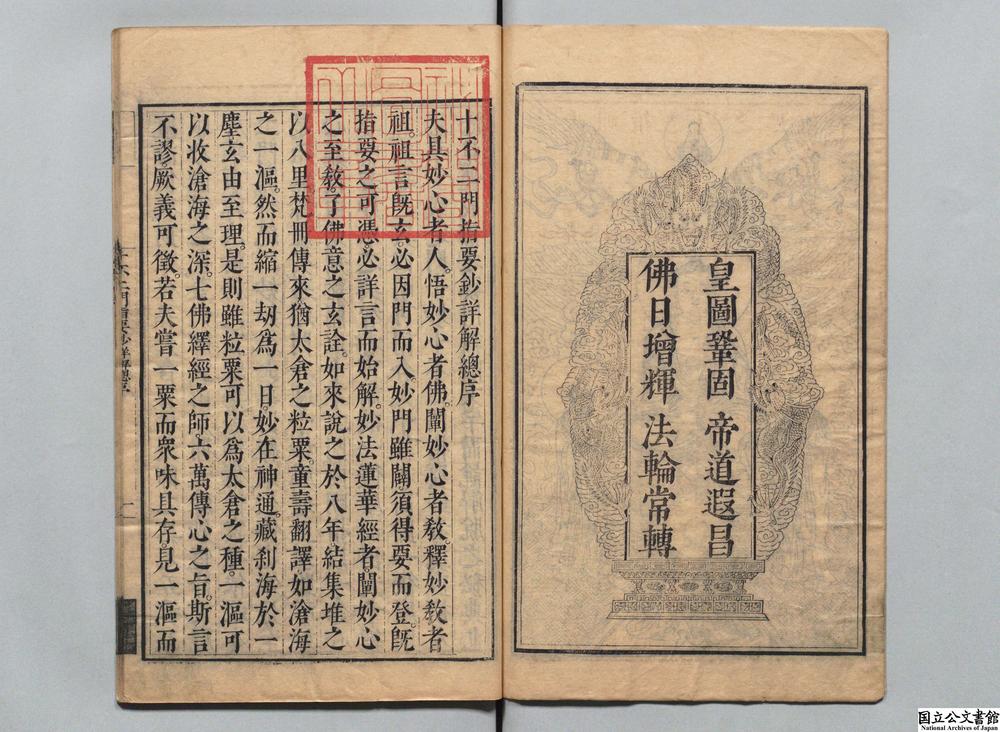 皇圖鞏固 帝道遐昌
佛日增輝 法輪常轉
十不二門指要鈔詳解總序
夫具妙心者人。悟妙心者佛。闡妙心者教。釋妙教者
祖。祖言旣玄。必因門而入。妙門雖闢。須得要而登。旣
指要之可憑。必詳言而始解。妙法蓮華經者。闡妙心
之至教。了佛意之玄詮。如來說之於八年。結集堆之
以八里。梵冊傳來猶太倉之粒粟。童壽翻譯如滄海
之一漚。然而縮一劫爲一日。妙在神通。藏刹海於一
塵。玄由至理。是則雖粒粟可以爲太倉之種。一漚可
以收滄海之深。七佛繹經之師。六萬傳心之旨。斯言
不謬。厥義可徵。若夫嘗一粟而衆味具存。見一漚而
国立公文書館
National Archives of Japan